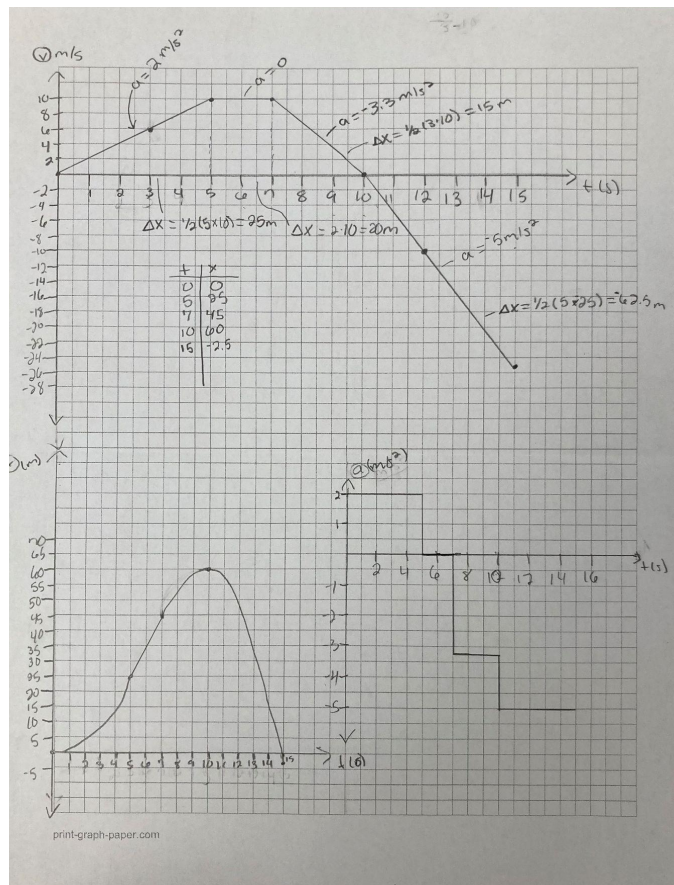 v m/s
a = 2 m/s²
a = 0
a = -3.3 m/s²
Δx = 1/2 (3·10) = 15 m
10
8
6
4
2
-2
-4
-6
-8
-10
-12
-14
-16
-18
-20
-22
-24
-26
-28
1 2 3 4 5 6 7 8 9 10 11 12 13 14 15 t (s)
Δx = 1/2 (5×10) = 25m
Δx = 2·10 = 20m
a = -5 m/s²
Δx = 1/2 (5·-25) = -62.5 m
t x
0 0
5 25
7 45
10 60
15 -2.5
(m)
70
65
60
55
50
45
40
35
30
25
20
15
10
5
-5
1 2 3 4 5 6 7 8 9 10 11 12 13 14 15
t (s)
a (m/s²)
2
1
-1
-2
-3
-4
-5
2 4 6 8 10 12 14 16 t (s)
print-graph-paper.com